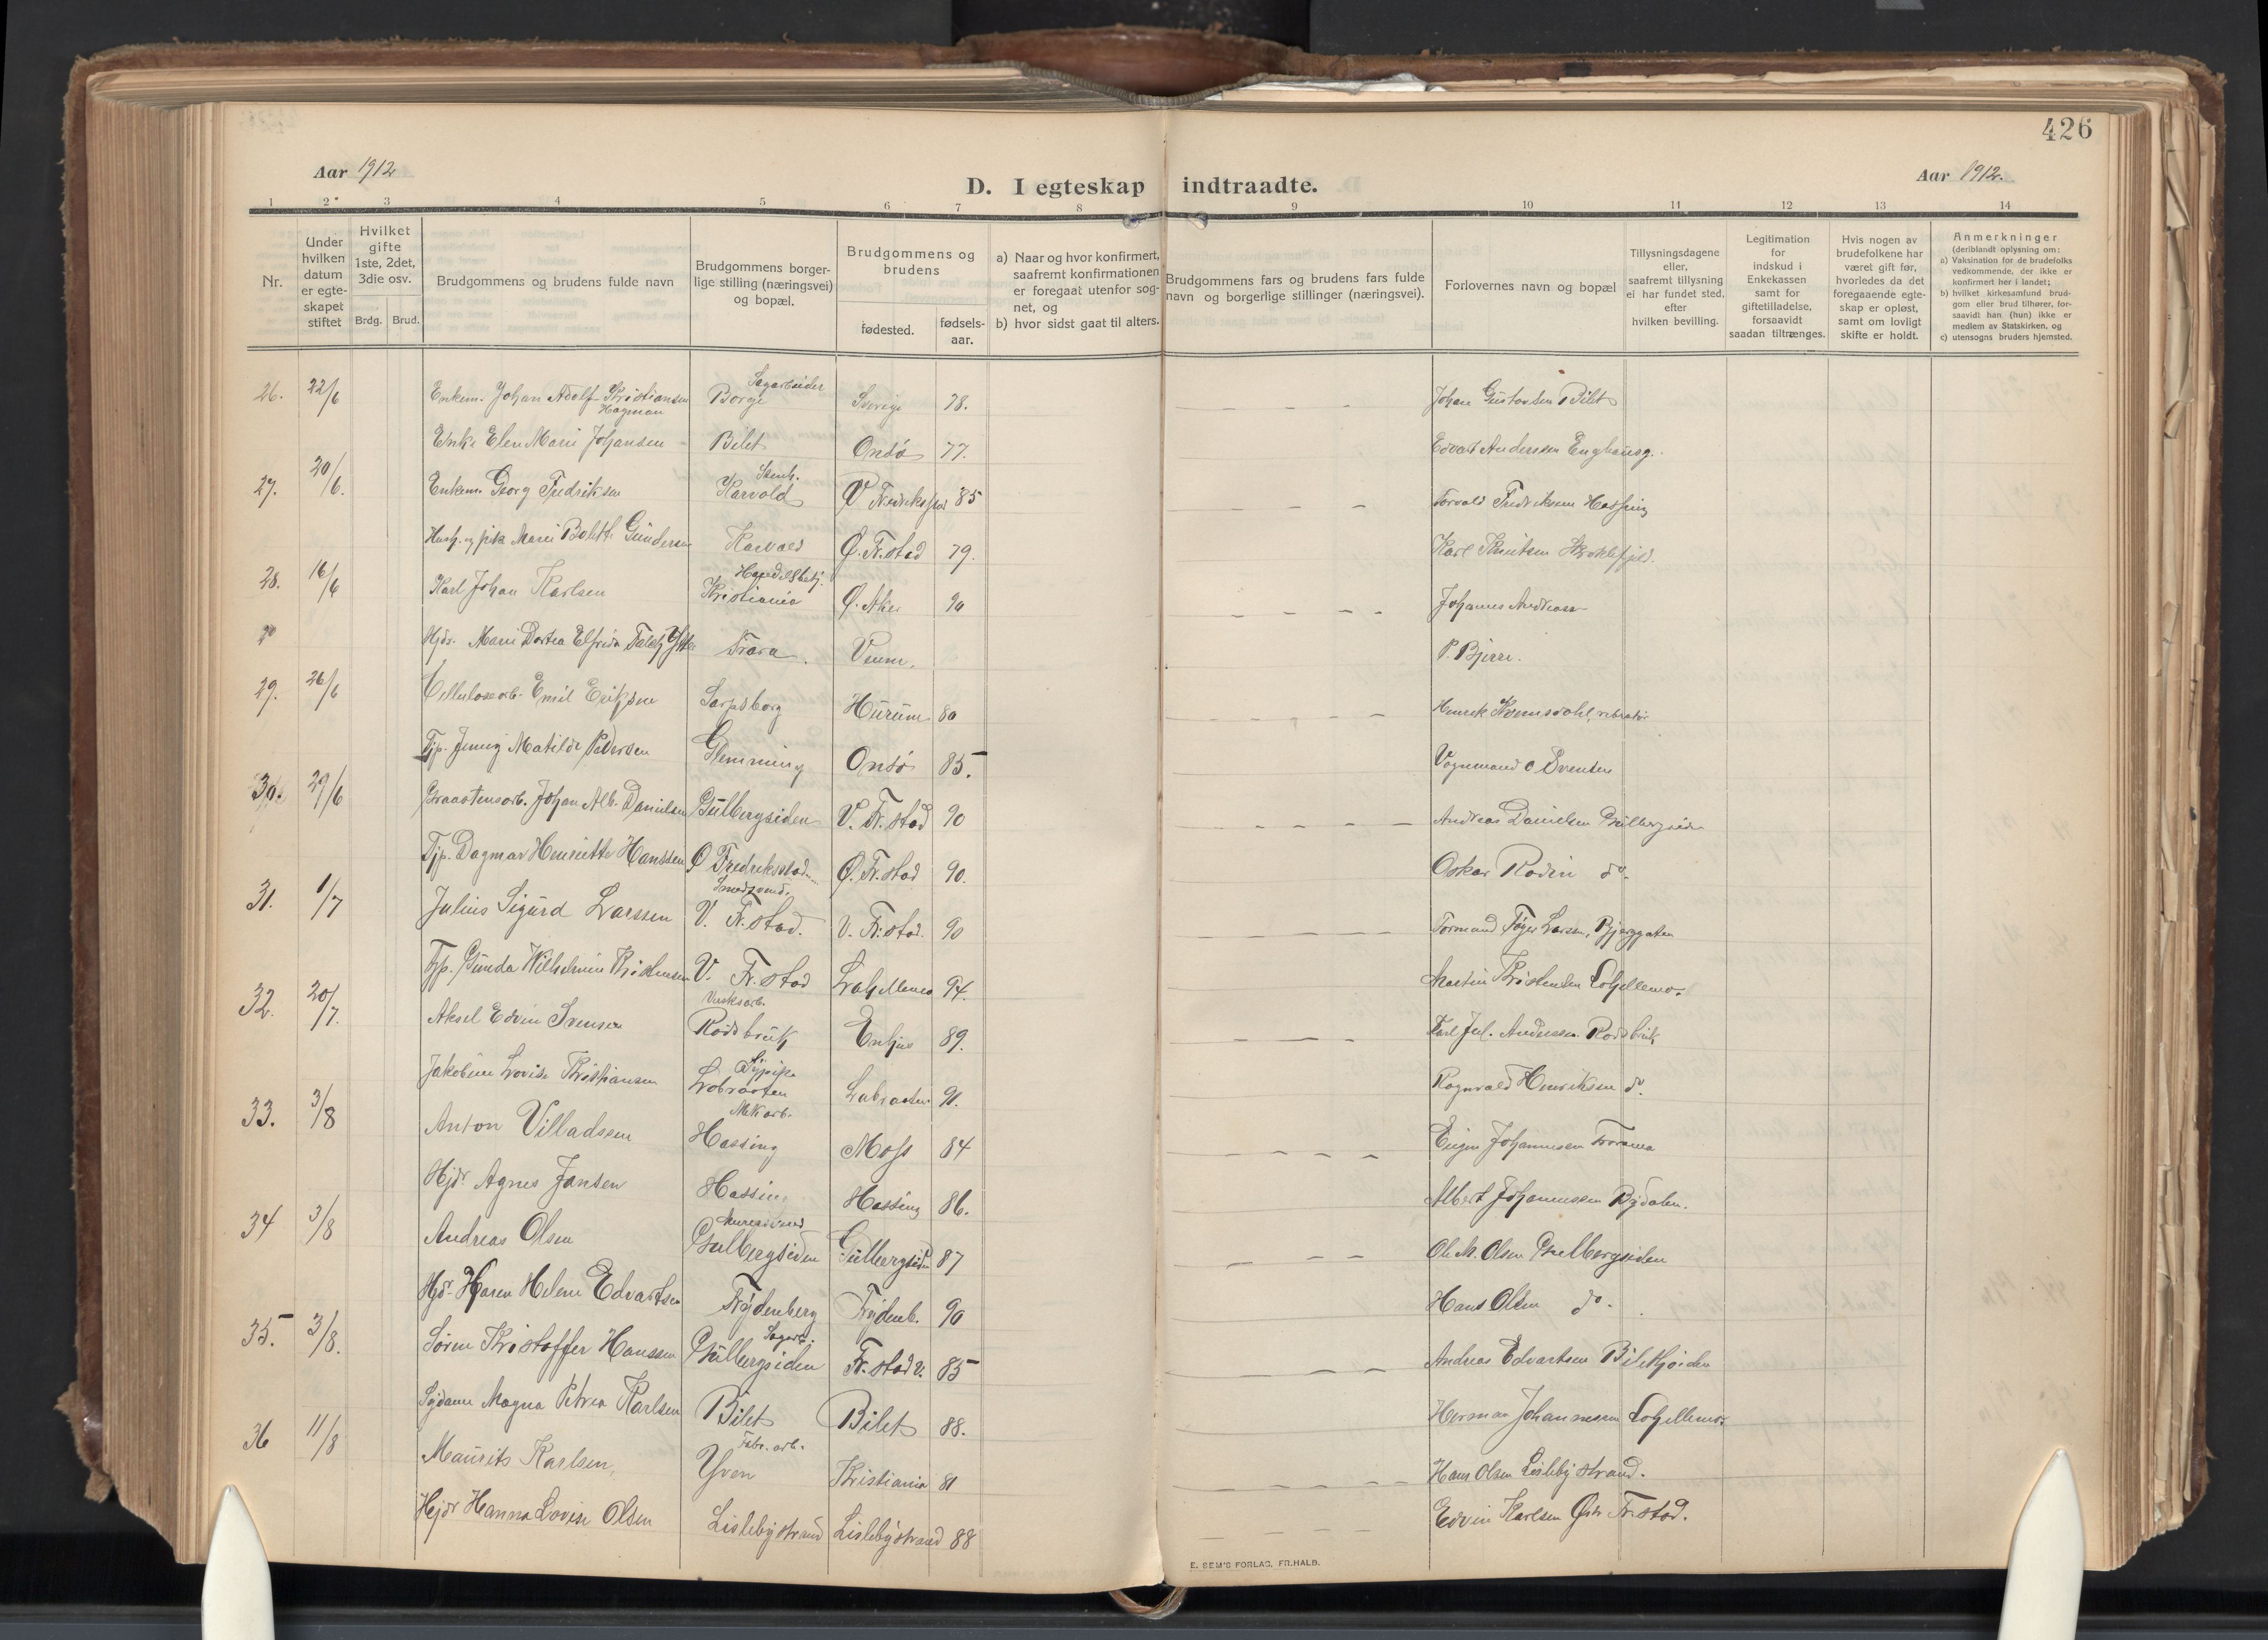 426
Aar 1912
D. I egteskap indtraadte.
Aar 1912.
1 2 3 4 5 6 7 8 9 10 11 12 13 14
Nr.
Under hvilken datum er egteskapet stiftet
Hvilket gifte 1ste, 2det, 3die osv.
Brdg. Brud.
Brudgommens og brudens fulde navn
Brudgommens borgerlige stilling (næringsvei) og bopæl.
Brudgommens og brudens
fødested.
fødselsaar.
a) Naar og hvor konfirmert, saafremt konfirmationen er foregaat utenfor sognet, og
b) hvor sidst gaat til alters.
Brudgommens fars og brudens fars fulde navn og borgerlige stillinger (næringsvei).
Forlovernes navn og bopæl
Tillysningsdagene eller, saafremt tillysning ei har fundet sted, efter hvilken bevilling.
Legitimation for indskud i Enkekassen samt for giftetilladelse, forsaavidt saadan tiltrænges.
Hvis nogen av brudefolkene har været gift før, hvorledes da det foregaaende egteskap er opløst, samt om lovligt skifte er holdt.
Anmerkninger
(deriblandt oplysning om:
a) Vaksination for de brudefolks vedkommende, der ikke er konfirmert her i landet;
b) hvilket kirkesamfund brudgom eller brud tilhører, forsaavidt han (hun) ikke er medlem av Statskirken, og
c) utensogns bruders hjemsted.
26. 22/6 Enkem. Johan Adolf Kristiansen Hagman Sagarbeider Borge Sverige 78. Johan Gustavsen Bilet
Enke Elen Marie Johansen Bilet Onsø 77. Edvart Andersen Enghaug.
27. 20/6. Enkem. Georg Fredriksen Stenh. Karvold V Fredrikstad 85 Torvald Fredriksen Hassing
Marie Bolette Gundersen Karvold Ø. Fr.stad 79. Karl Knutsen
28. 16/6 Karl Johan Karlsen Handelsbetj. Kristiania Ø. Aker 90 Johannes Andreassen
Hjds. Marie Dortea Elfrida Trara. P. Bjerre.
29. 26/6 Cellulosearb. Emil Eriksen Sarpsborg Hurum 80 Henrik
Tjp. Jenny Matilde Pedersen Glemming Onsø 85. Vognmand O Svendsen
30. 29/6 Graastensarb. Johan Alb. Danielsen Gulbergsiden V. Fr.stad 90 Andreas Danielsen Gulbergsiden
Tjp. Dagmar Henriette Hanssen Ø Fredrikstad Ø. Fr.stad 90. Oskar Rodin do.
31. 1/7 Julius Sigurd Larssen Smedsvend. V. Fr.stad. V. Fr.stad. 90 Formand Larsen, Bjerggaten
Tjp. Gunda Wilhelmine Kristensen V. Fr.stad Lahellemo 94. Martin Kristensen Lahellemo.
32. 20/7. Aksel Edvin Svensen Verksarb. Rodsbruk 89. Karl Jul. Andersen Rodsbruk
Jakobine Lovise Kristiansen Sypike Labraaten Labraaten 91. Ragnvald Henriksen do.
33. 3/8 Anton Villadssen Mek arb. Hassing Moss 84 Johannesen
Hjds. Agnes Jansen Hassing Hassing 86. Albert Johannessen Bydalen.
34 3/8 Andreas Olsen Murersvend Gulbergsiden Gulbergsiden 87 Ole M. Olsen Gulbergsiden
Hjds. Karen Helene Edvartsen Frydenberg Frydenb. 90 Hans Olsen do.
35. 3/8. Søren Kristoffer Hanssen Sagarb. Gulbergsiden Fr.stad v. 85 Andreas Edvartsen
Sydame Magna Petrea Karlsen Bilet Bilet 88. Herman Johannesen Lahellemo.
36 11/8 Mauritz Karlsen, Fabr. arb. Yven Kristiania 81 Hans Olsen Lislebystrand.
Hjds Hanna Lovise Olsen Lislebystrand Lislebystrand 88 Edvin Karlsen Fr.stad.
E. SEM'S FORLAG, FR.HALD.